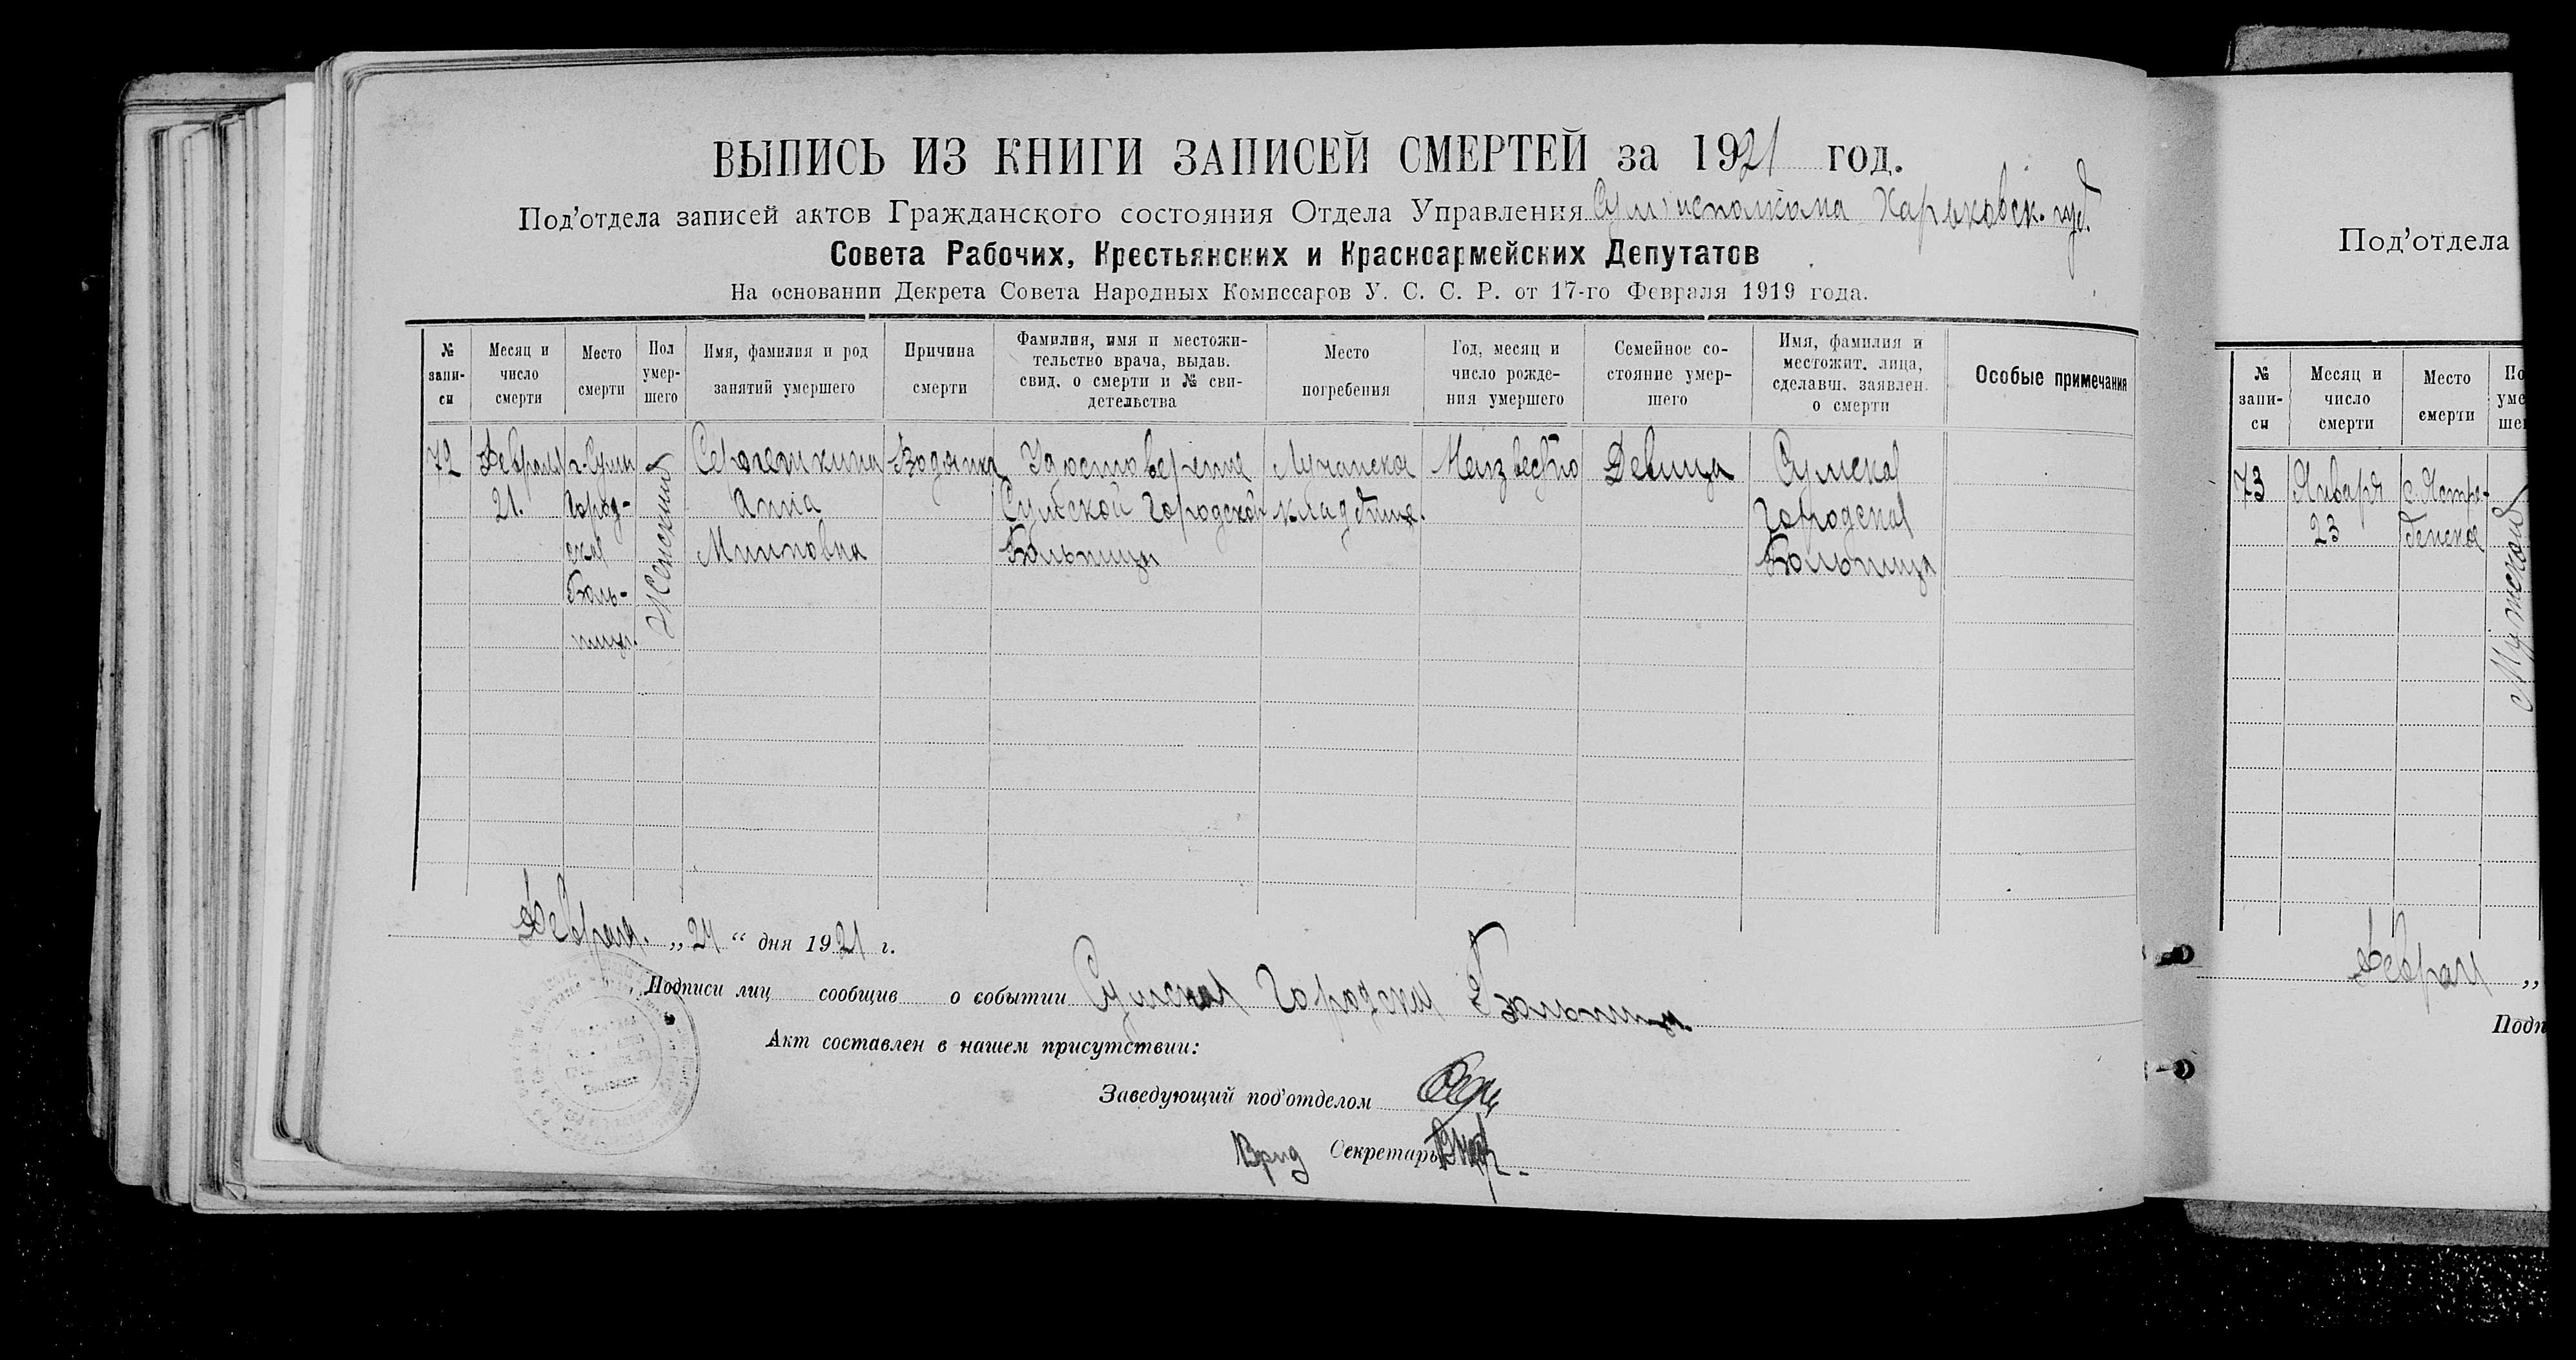 ВЫПИСЬ ИЗ КНИГИ ЗАПИСЕЙ СМЕРТЕЙ за 1921 год.
Под'отдела записей актов Гражданского состояния Отдела Управления исполкома Харьковск. губ.
Совета Рабочих, Крестьянских и Красноармейских Депутатов
На основании Декрета Совета Народных Комиссаров У. С. С. Р. от 17-го Февраля 1919 года.
№ запи-си
Месяц и число смерти
Место смерти
Пол умер-шего
Имя, фамилия и род занятий умершего
Причина смерти
Фамилия, имя и местожи-тельство врача, выдав. свид. о смерти и № сви-детельства
Место погребения
Год, месяц и число рожде-ния умершего
Семейное со-стояние умер-шего
Имя, фамилия и местожит. лица, сделавш. заявлен. о смерти
Особые примечания
72
Февраля
21.
г. Сумы
Город-
ская
Боль-
ница.
Женский
Анна
Водянка
Удостоверение
Сумской Городской
Больницы
Лучанское
кладбище.
Неизвестно
Девица
Сумская
Городская
Больница
Февраля „24“ дня 1921 г.
Подписи лиц сообщив о событии Сумская Городская Больница.
Акт составлен в нашем присутствии:
Заведующий под'отделом
Врид Секретарь
Под'отдела
№ запи-си
Месяц и число смерти
Место смерти
73
Января
23
Мужской
Февраля „